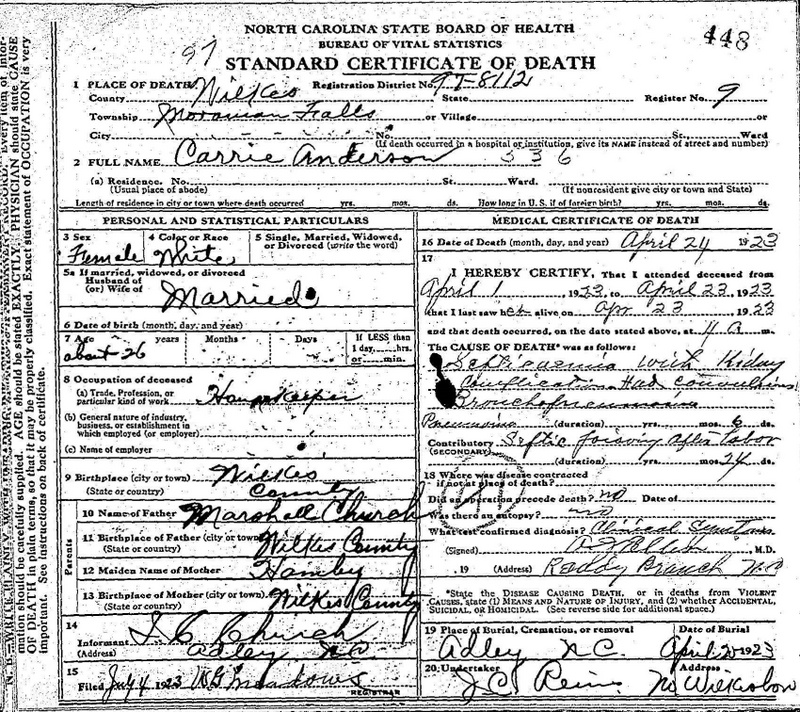 NORTH CAROLINA STATE BOARD OF HEALTH
448
BUREAU OF VITAL STATISTICS
97
STANDARD CERTIFICATE OF DEATH
1 PLACE OF DEATH Registration District No. 97-8112
County Wilkes State Register No. 9
Township Moravian Falls or Village or
City No. St. Ward
(If death occurred in a hospital or institution, give its NAME instead of street and number)
2 FULL NAME Carrie Anderson 536
(a) Residence. No. St. Ward.
(Usual place of abode) (If nonresident give city or town and State)
Length of residence in city or town where death occurred yrs. mos. ds. How long in U.S. if of foreign birth? yrs. mos. ds.
PERSONAL AND STATISTICAL PARTICULARS
3 Sex 4 Color or Race 5 Single, Married, Widowed,
or Divorced (write the word)
Female White
5a If married, widowed, or divorced
Husband of
(or) Wife of Married
6 Date of birth (month, day, and year)
7 Age years Months Days If LESS than
1 day, hrs.
about 26 or min.
8 Occupation of deceased
(a) Trade, Profession, or
particular kind of work Housekeeper
(b) General nature of industry,
business, or establishment in
which employed (or employer)
(c) Name of employer
9 Birthplace (city or town) Wilkes
(State or country) County
Parents
10 Name of Father Marshall Church
11 Birthplace of Father (city or town)
(State or country) Wilkes County
12 Maiden Name of Mother Hamby
13 Birthplace of Mother (city or town)
(State or country) Wilkes County
14
Informant J C Church
(Address) Adley NC
15
Filed July 4 1923 Meadows
REGISTRAR
MEDICAL CERTIFICATE OF DEATH
16 Date of Death (month, day, and year) April 24 1923
17
I HEREBY CERTIFY, That I attended deceased from
April 1, 1923 to April 23, 1923
that I last saw her alive on Apr 23 1923
and that death occurred, on the date stated above, at 4 a m.
The CAUSE OF DEATH* was as follows:
Septicaemia with Kidney
Complication Had convulsions
Bronchopneumonia
Pneumonia (duration) yrs. mos. 6 ds.
Contributory Septic poisoning after labor
(SECONDARY)
(duration) yrs. mos. 24 ds.
18 Where was disease contracted
if not at place of death?
Did an operation precede death? no Date of
Was there an autopsy? no
What test confirmed diagnosis? Clinical Symptoms
(Signed) M.D.
, 19 (Address) Roddy Branch N.C.
*State the DISEASE CAUSING DEATH, or in deaths from VIOLENT
CAUSES, state (1) MEANS AND NATURE OF INJURY, and (2) whether ACCIDENTAL,
SUICIDAL, or HOMICIDAL. (See reverse side for additional space.)
19 Place of Burial, Cremation, or removal Date of Burial
Adley N.C. April 1923
20 Undertaker Address
J.C. Reins N. Wilkesboro
mation should be carefully supplied. AGE should be stated EXACTLY. PHYSICIAN should state CAUSE
OF DEATH in plain terms, so that it may be properly classified. Exact statement of OCCUPATION is very
important. See instructions on back of certificate.